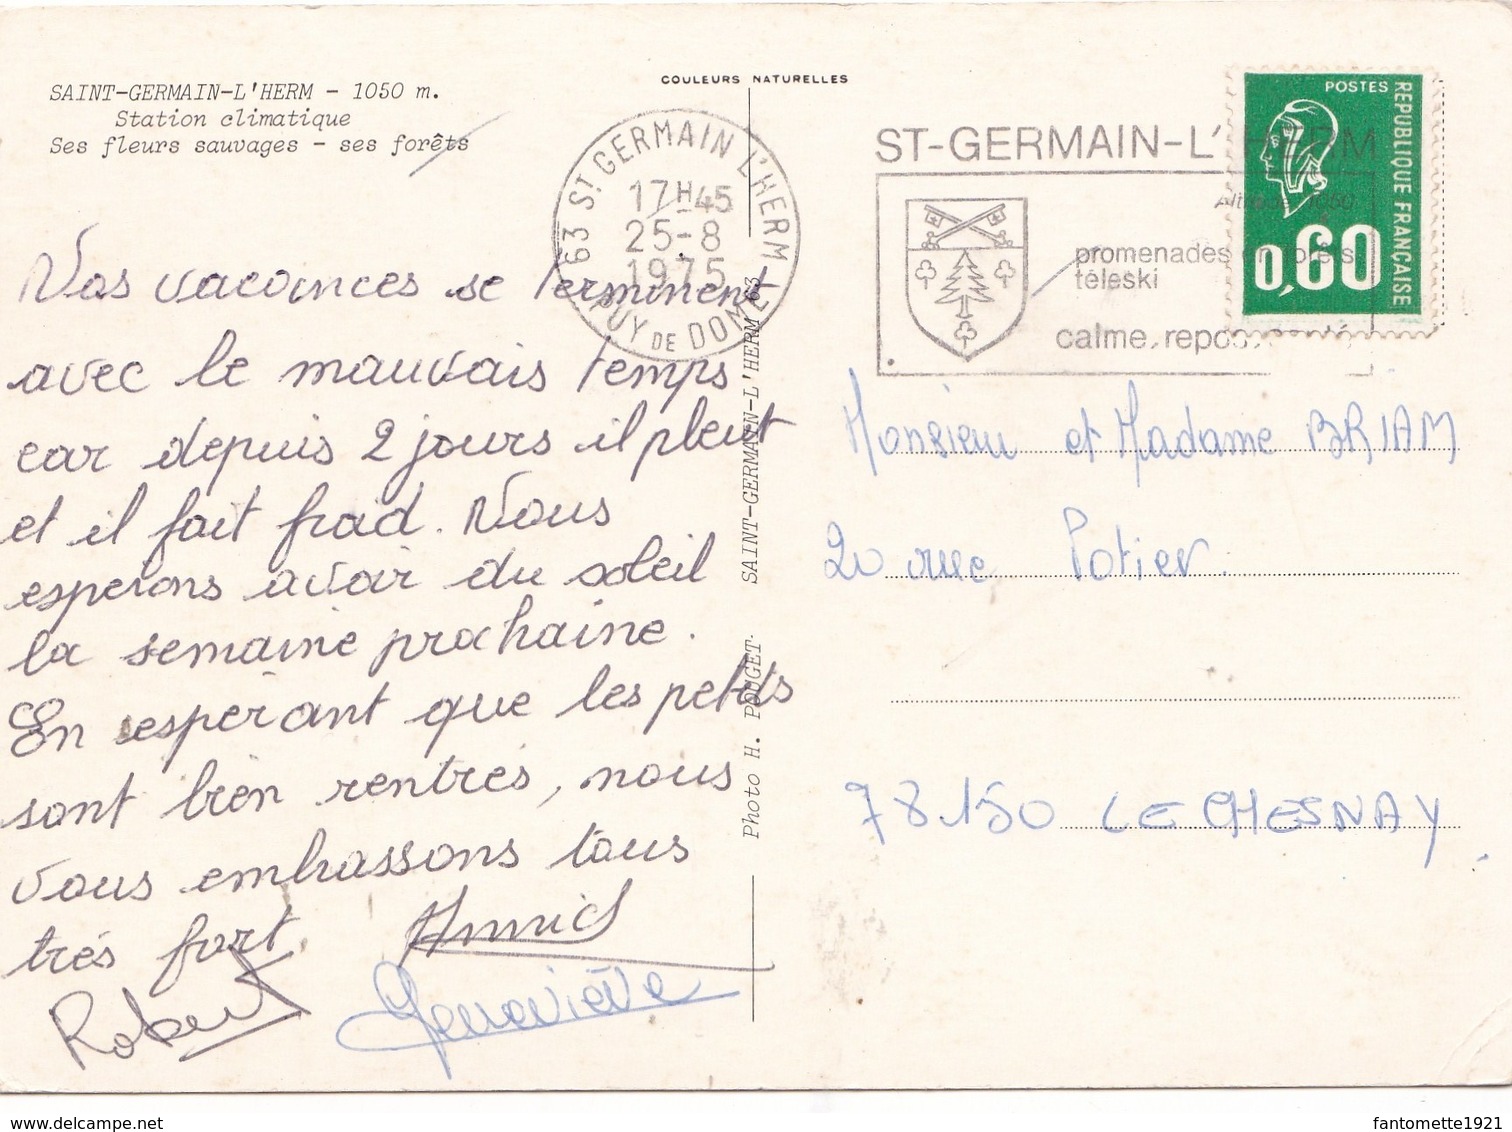 SAINT-GERMAIN-L'HERM - 1050 m.
Station climatique
Ses fleurs sauvages - ses forêts
COULEURS NATURELLES
63 ST GERMAIN L'HERM
17H45
25-8
1975
PUY DE DOME
ST-GERMAIN-L'HERM
Altitude 1050
promenades en forêts
téleski
calme, repos
POSTES
REPUBLIQUE FRANÇAISE
0,60
Nos vacances se terminent
avec le mauvais temps
car depuis 2 jours il pleut
et il fait froid. Nous
esperons avoir du soleil
la semaine prochaine.
En espérant que les petits
sont bien rentrés, nous
vous embrassons tous
très fort.
Annick
Robert
Geneviève
Photo H. POUGET. SAINT-GERMAIN-L'HERM 63
Monsieur et Madame BRIAM
20 rue Potier.
78150 LE CHESNAY.
fantomette1921